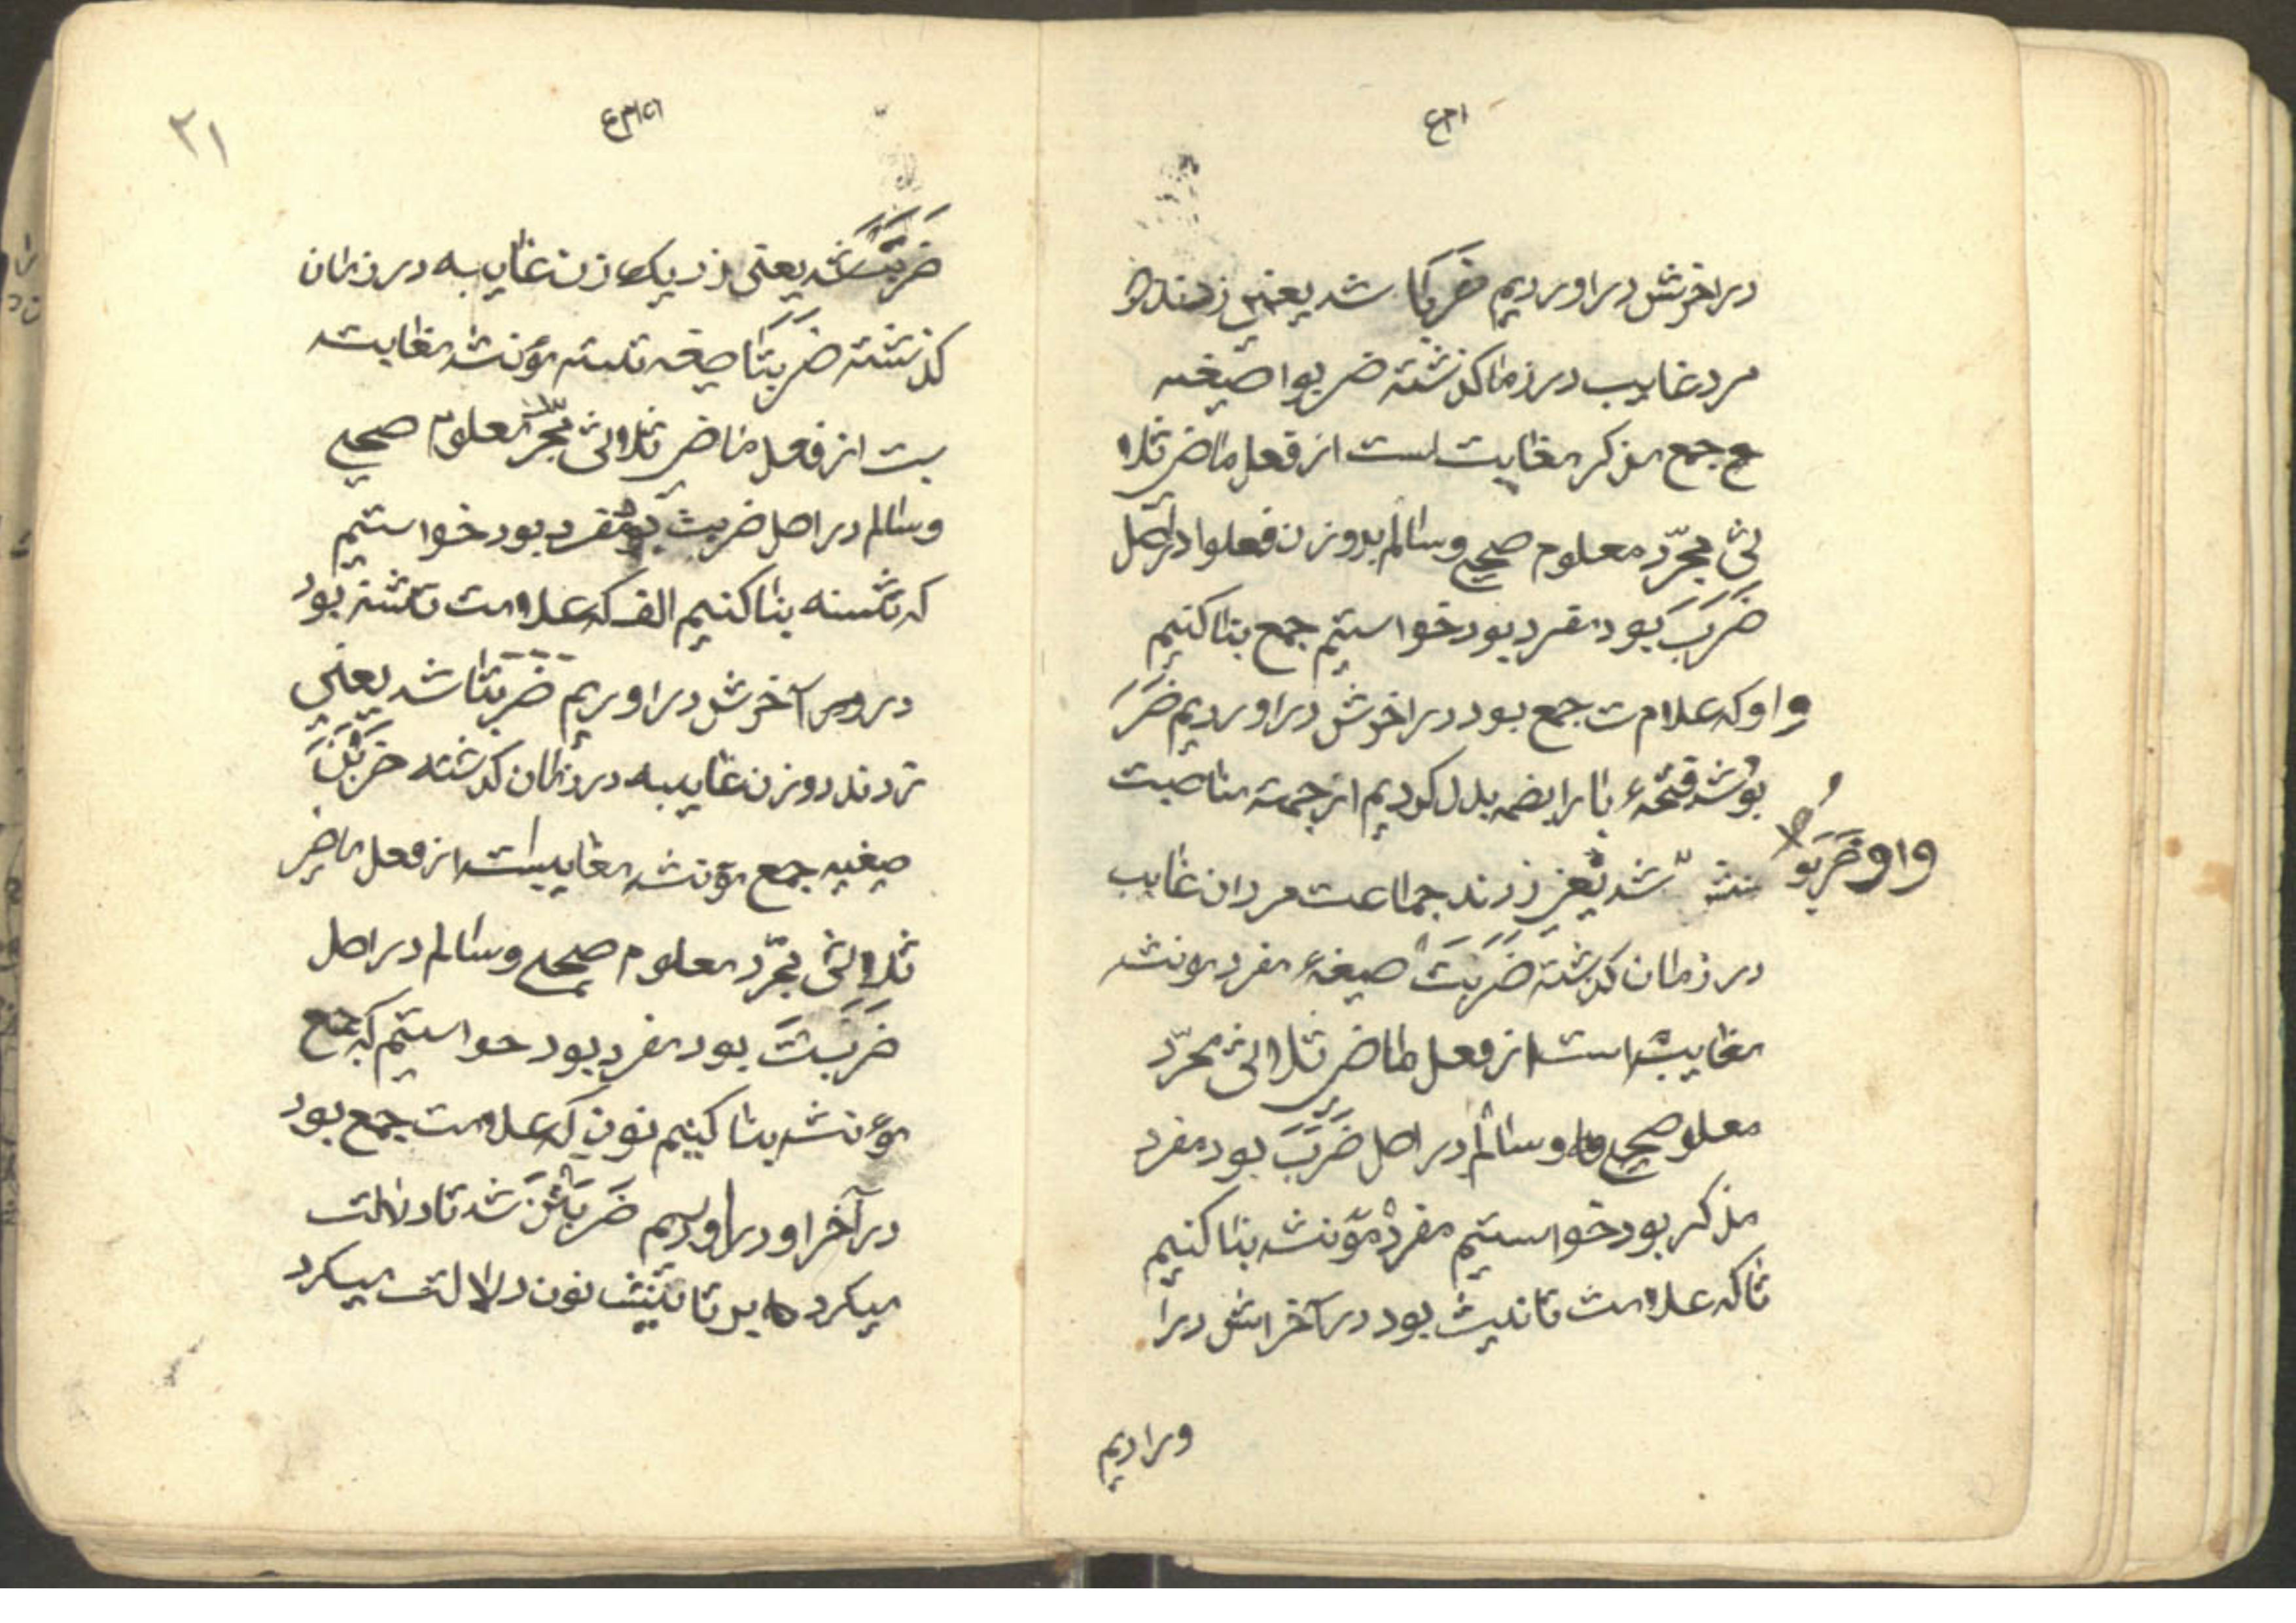 در اخرش در اوردیم ضربا شد یعنی زدند دو
مرد غایب در زما کذشته ضربوا صیغه
ع جمع مذکر مغایب است از فعل ماضی ثلا
لثی مجرّد معلوم صحیح و سالم بر وزن فعلوا در اصل
ضَرَبَ بود مفرد بود خواستیم جمع بنا کنیم
واو که علامت جمع بود در اخرش در اوردیم ضَرَ
بُو شد فتحهٔ با را بضمه بدل کردیم از جهة مناصبت
واو ضَرَبُوا شد یعنی زدند جماعت مردان غایب
در زمان کذشته ضَرَبَتْ صیغهٔ مفرد مونثه
مغایبه است از فعل ماضی ثلاالثی مجرّد
معلو صحیح و سالم در اصل ضَرَبَ بود مفرد
مذکر بود خواستیم مفرد مؤنثه بنا کنیم
تا که علامت تانیث بود در آخراش در ا
ورادیم
۲۱
ضَرَبَتْ شد یعنی زد یک زن غایبه در زمان
کذشته ضَرَبَتَا صیغه تثنیه مؤنثه مغایبت
ست از فعل ماضی ثلاالثی مجرّد معلوم صحیح
و سالم در اصل ضربت بود مفرد بود خواستیم
که تثنیه بنا کنیم الف که علامت تثنیه بود
در آخرش در اوریم ضَرَبَتَا شد یعنی
زدند دو زن غایبه در زمان کذشته ضَرَبْنَ
صیغیه جمع مؤنثه مغایبست از فعل ماضی
ثلاالثی مجرّد معلوم صحیح و سالم در اصل
ضَرَبَتَ بود مفرد بود خواستیم که جمع
مؤنثه بنا کنیم نون که علامت جمع بود
در آخر او در اوریم ضَرَبَتْنَ شد تا دلالت
میکرد بر تانیث نون دلالت میکرد